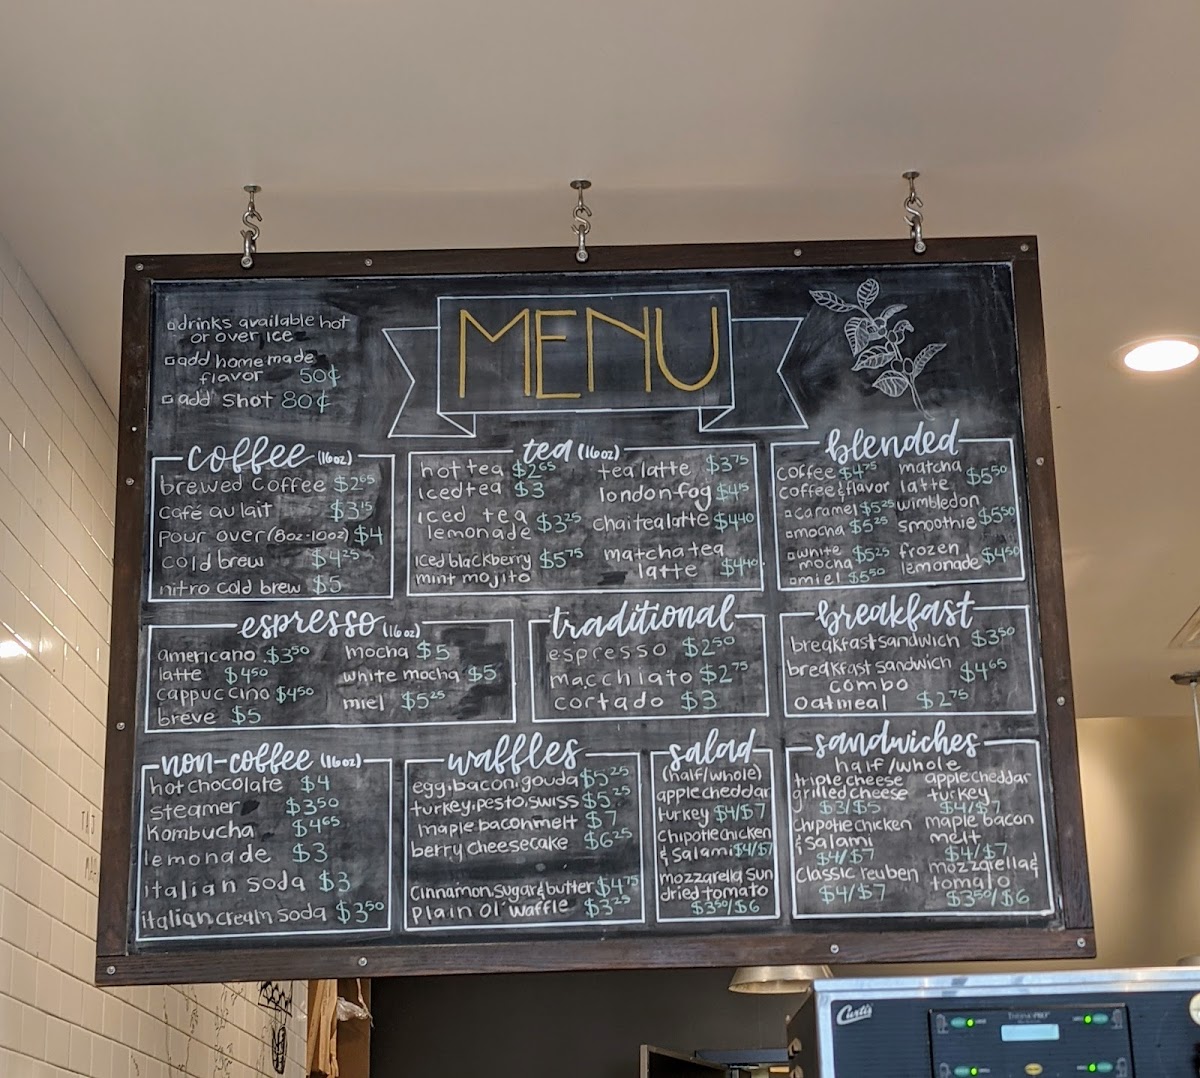 MENU
drinks available hot
or over ice
add homemade
flavor 50¢
add shot 80¢
coffee (16oz)
brewed coffee $2.65
café au lait $3.15
pour over (8oz-10oz) $4
cold brew $4.25
nitro cold brew $5
tea (16oz)
hot tea $2.65
iced tea $3
iced tea
lemonade $3.25
iced blackberry
mint mojito $5.75
tea latte $3.75
london fog $4.15
chai tea latte $4.40
matcha tea
latte $4.40
blended
coffee $4.75
coffee & flavor
caramel $5.25
mocha $5.25
white
mocha $5.25
miel $5.50
matcha
latte $5.50
wimbledon
smoothie $5.50
frozen
lemonade $4.50
espresso (16oz)
americano $3.50
latte $4.50
cappuccino $4.50
breve $5
mocha $5
white mocha $5
miel $5.25
traditional
espresso $2.50
macchiato $2.75
cortado $3
breakfast
breakfast sandwich $3.50
breakfast sandwich
combo $4.65
oatmeal $2.75
non-coffee (16oz)
hot chocolate $4
steamer $3.50
kombucha $4.65
lemonade $3
italian soda $3
italian cream soda $3.50
waffles
egg, bacon, gouda $5.25
turkey, pesto, swiss $5.25
maple bacon melt $7
berry cheesecake $6.25
cinnamon, sugar & butter $4.75
plain ol' waffle $3.25
salad
(half/whole)
apple cheddar
turkey $4/$7
chipotle chicken
& salami $4/$7
mozzarella sun
dried tomato
$3.50/$6
sandwiches
half/whole
triple cheese
grilled cheese
$3/$5
chipotle chicken
& salami
$4/$7
classic reuben
$4/$7
apple cheddar
turkey
$4/$7
maple bacon
melt
$4/$7
mozzarella &
tomato
$3.50/$6
Curtis